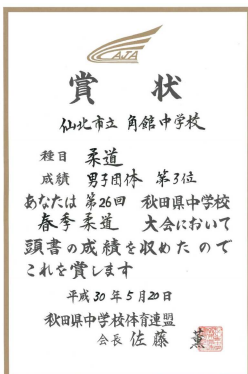 賞状
仙北市立 角館中学校
種目 柔道
成績 男子団体 第3位
あなたは 第26回 秋田県中学校
春季柔道 大会において
頭書の成績を収めたので
これを賞します
平成30年5月20日
秋田県中学校体育連盟
会長 佐藤 薫